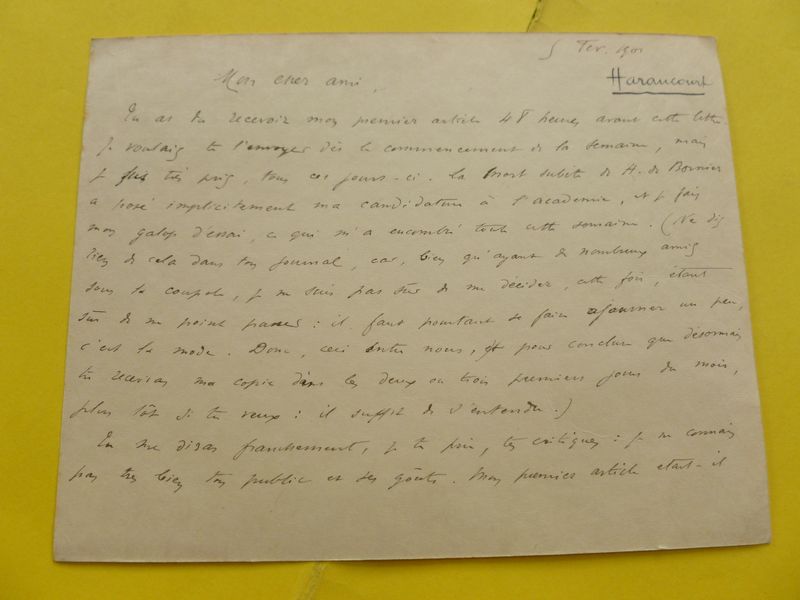 5 Fev. 1901
Haraucourt
Mon cher ami,
Tu as dû recevoir mon premier article 48 heures avant cette lettre
Je voulais te l'envoyer dès le commencement de la semaine, mais
je fus très pris, tous ces jours-ci. La mort subite de H. de Bornier
a posé implicitement ma candidature à l'académie, et je fais
mon galop d'essai, ce qui m'a encombré toute cette semaine. (Ne dis
rien de cela dans ton journal, car, bien qu'ayant de nombreux amis
sous la coupole, je ne suis pas sûr de me décider, cette fois, étant
sûr de ne point passer : il faut pourtant se faire ajourner un peu,
c'est la mode. Donc, ceci entre nous, et pour conclure que désormais
tu recevras ma copie dans les deux ou trois premiers jours du mois,
plus tôt si tu veux : il suffit de s'entendre.)
Tu me diras franchement, je te prie, tes critiques : je ne connais
pas très bien ton public et ses goûts. Mon premier article était-il